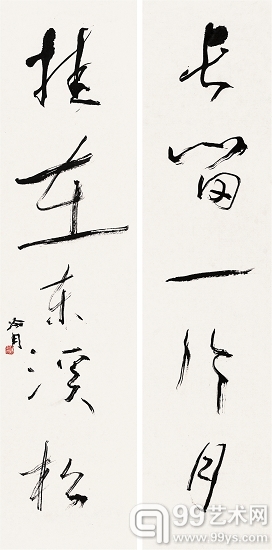 长留一片月
挂在东溪松
99艺术网
www.99ys.com